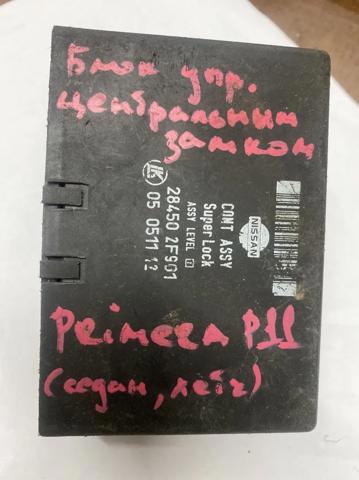 Блок упр.
центральным
замком
NISSAN
CONT ASSY
Super Lock
ASSY LEVEL
28450 2F901
05 0511 12
Primera P11
(седан, хетч)